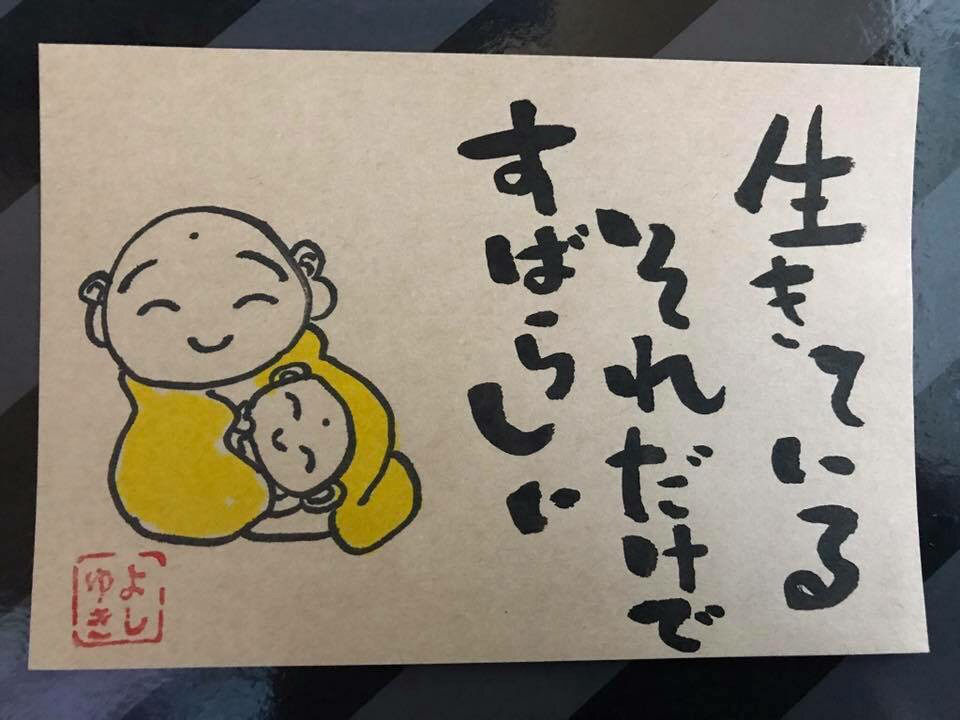 生きている
それだけで
すばらしい
よし
ゆき